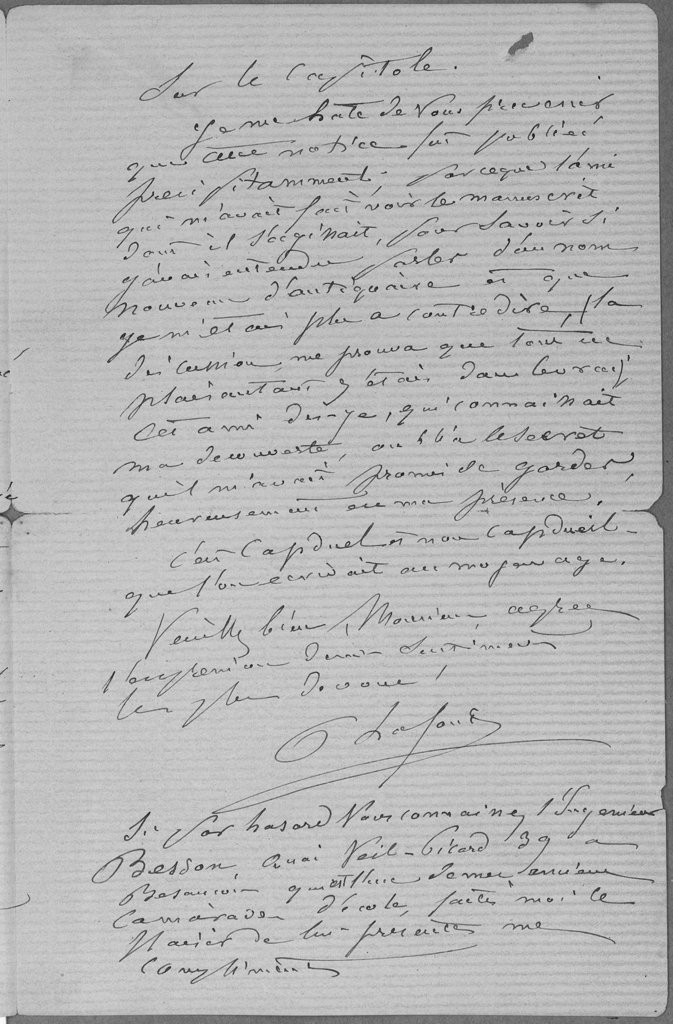 Sur le Capitole.
Je me hate de vous prevenir
que cette notice fut publiée
precipitamment. Parceque l'ami
qui m'avait fait voir le manuscrit
dont il s'agissait, pour savoir si
j'avais entendu parler d'un nom
nouveau d'antiquaire et que
je m'étais plu a contredire, la
discussion me prouva que tout en
plaisantant j'étais dans le vrai,
Cet ami dis-je, qui connaissait
ma decouverte, oublia le secret
qu'il m'avait promis de garder,
heureusement en ma présence.
C'est Capduel et non Capdueil
que l'on ecrivait au moyen age.
Veuillez bien, Monsieur, agreer
l'expression de mes sentiments
les plus devoués
Lafont
Si par hasard Vous connaissez l'Ingenieur
Besson, quai Veil-Picard 39 a
Besançon qui est l'un de mes anciens
Camarades d'école, faites moi le
plaisir de lui presenter mes
compliments